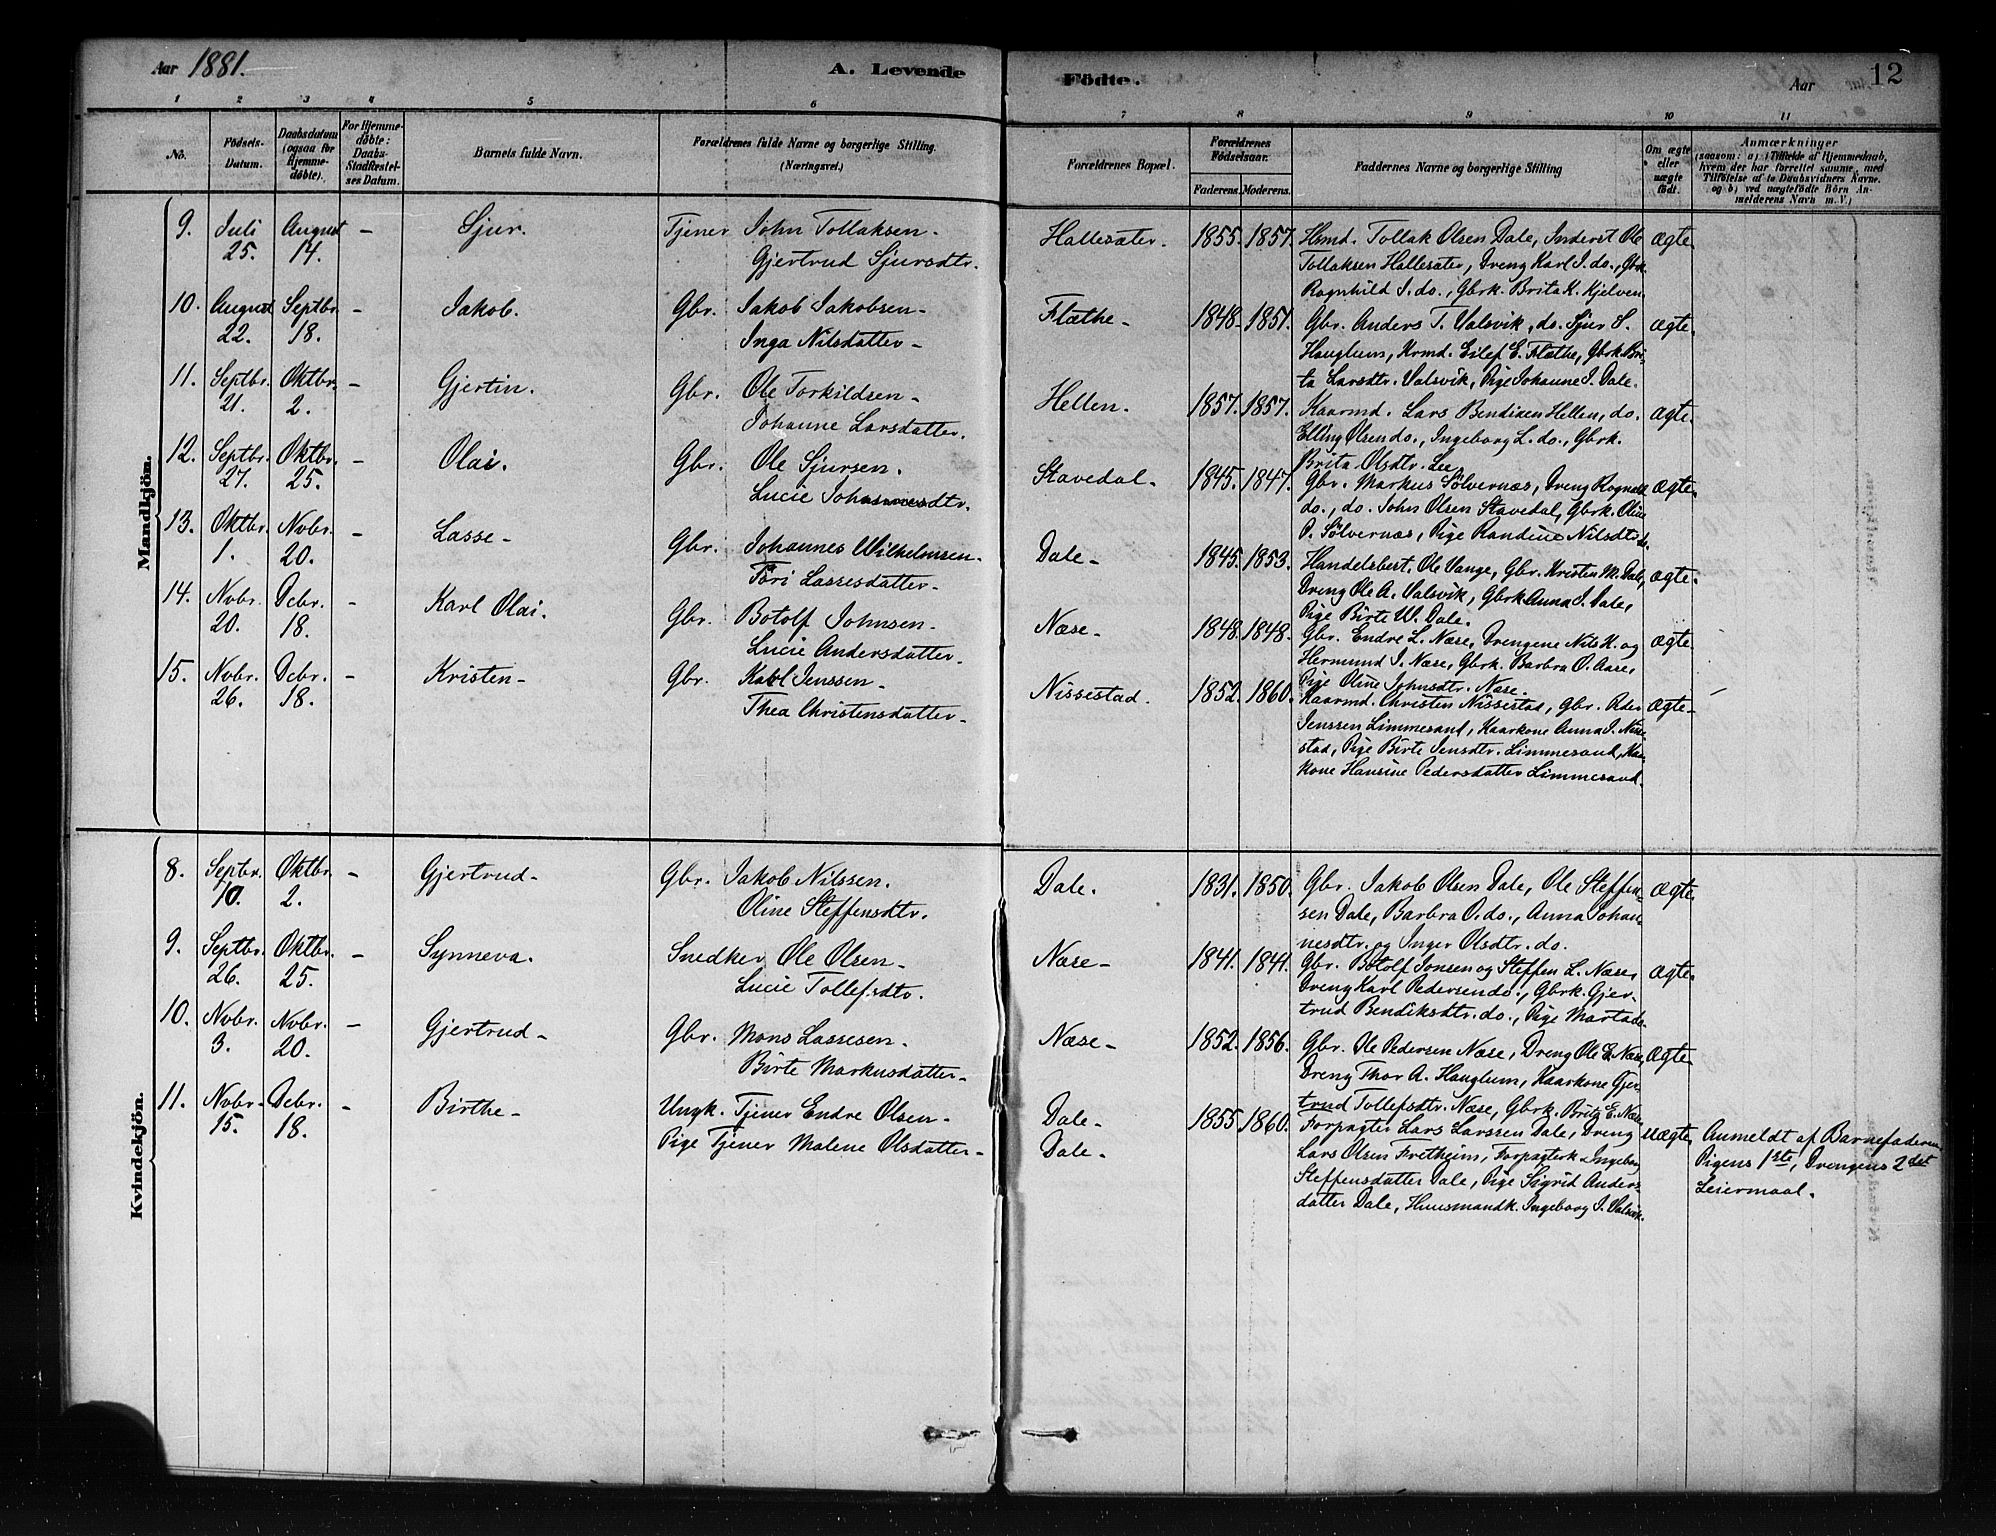 Aar 1881.
A. Levende
Födte.
Aar
12
1 2 3 4 5 6
7 8 9 10 11
No.
Födsels-
Datum.
Daabsdatum
(ogsaa for
Hjemme-
döbte).
For Hjemme-
döbte:
Daabs-
Stadfæstel-
ses Datum.
Barnets fulde Navn.
Forældrenes fulde Navne og borgerlige Stilling.
(Næringsvei.)
Forældrenes Bopæl.
Forældrenes
Födselsaar.
Faderens. Moderens.
Faddernes Navne og borgerlige Stilling
Om ægte
eller
uægte
födt.
Anmærkninger
(saasom: a) Tilfælde af Hjemmedaab,
hvem der har forrettet samme, med
Tilföielse af to Daabsvidners Navne,
og b) ved uægtefödte Börn An-
melderens Navn m. V.)
Mandkjön.
9. Juli August – Sjur. Tjener John Tollaksen.
25. 14. Gjertrud Sjursdtr.
Hallesater. 1855. 1857. Hsmd. Tollak Olsen Dale, Inderst Ole ægte.
Tollaksen Hallesater, Dreng Karl J. do., Gbrk.
Ragnhild J. do., Gbrk. Brita K. Kjelven
10. August Septbr. – Jakob. Gbr. Jakob Jakobsen –
22. 18. Inga Nilsdatter –
Flæthe – 1848. 1851. Gbr. Anders T. Valsvik, do. Sjur S. ægte.
Hauglum, Hrmd. Eilef E. Flæthe, Gbrk Bri-
ta Larsdtr. Valsvik, Pige Johanne J. Dale.
11. Septbr. Oktbr. – Gjertin. Gbr. Ole Torkildsen –
21. 2. Johanne Larsdatter.
Hellen. 1857. 1857. Kaarmd. Lars Bendixen Hellen, do. ægte.
Elling Olsen do., Ingeborg L. do., Gbrk.
Brita Olsdtr. Lee
12. Septbr. Oktbr. – Olai. Gbr. Ole Sjursen.
27. 25. Lucie Johannesdtr.
Stavedal. 1845. 1847. Gbr. Markus Sölvernæs, Dreng Rognald ægte.
do., do. John Olsen Stavedal, Gbrk. Oline
P. Sölvernæs, Pige Randine Nilsdtr
13. Oktbr. Novbr. – Lasse – Gbr. Johannes Wilhelmsen.
1. 20. Töri Lassesdatter –
Dale – 1845. 1853. Handelsbert. Ole Vange, Gbr. Kristen M. Dale, ægte –
Dreng Ole A. Valsvik, Gbrk Anna J. Dale,
Pige Birte W. Dale.
14. Novbr. Decbr. – Karl Olai. Gbr. Botolf Johnsen –
20. 18. Lucie Andersdatter.
Næse – 1848. 1848. Gbr. Endre L. Næse, Drengene Nils K. og ægte.
Hermund J. Næse, Gbrk. Barbra O. Aase,
Pige Oline Johnsdtr. Næse.
15. Novbr. Decbr. – Kristen – Gbr. Karl Jenssen –
26. 18. Thea Christensdatter –
Nissestad. 1852. 1860. Kaarmd. Christen Nissestad, Gbr. Peder ægte –
Jenssen Limmesand, Kaarkone Anna J. Nisse-
stad, Pige Birte Jensdtr. Limmesand, Kaar-
kone Hansine Pedersdatter Limmesand.
Kvindekjön.
8. Septbr. Oktbr. – Gjertrud – Gbr. Jakob Nilssen.
10. 2. Oline Steffensdtr.
Dale. 1831. 1850. Gbr. Jakob Olsen Dale, Ole Steffen- ægte.
sen Dale, Barbra O. do., Anna Johan-
nesdtr. og Inger Olsdtr. do.
9. Septbr. Oktbr. – Synneva. Snedker Ole Olsen –
26. 25. Lucie Tollefsdtr.
Næse – 1841. 1841. Gbr. Botolf Jonsen og Steffen L. Næse, ægte.
Dreng Karl Pedersen do., Gbrk. Gjer-
trud Bendiksdtr. do., Pige Marta do.
10. Novbr. Novbr. – Gjertrud – Gbr. Mons Lassesen.
3. 20. Birte Markusdatter –
Næse – 1852. 1856. Gbr. Ole Pedersen Næse, Dreng Ole E. Næse, ægte
Dreng Thor A. Hauglum, Kaarkone Gjer-
trud Tollefsdtr. Næse, Gbrk. Brita E. Næse
11. Novbr. Decbr. – Birthe – Ungk. Tjener Endre Olsen –
15. 18. Pige Tjener Malene Olsdatter –
Dale – 1855. 1860. Forpagter Lars Larssen Dale, Dreng uægte. Anmeldt af Barnefaderen
Dale – Lars Olsen Fretheim, Forpagterk. Ingeborg Pigens 1ste, Drengens 2det
Steffensdatter Dale, Pige Sigrid Anders- Leiermaal.
datter Dale, Huusmandk. Ingeborg J. Valsvik.